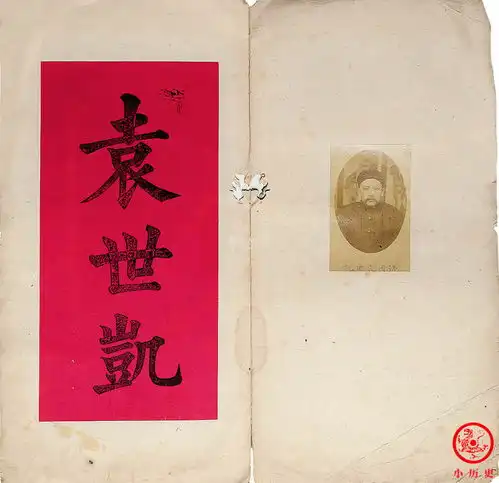 袁世凱
小历史